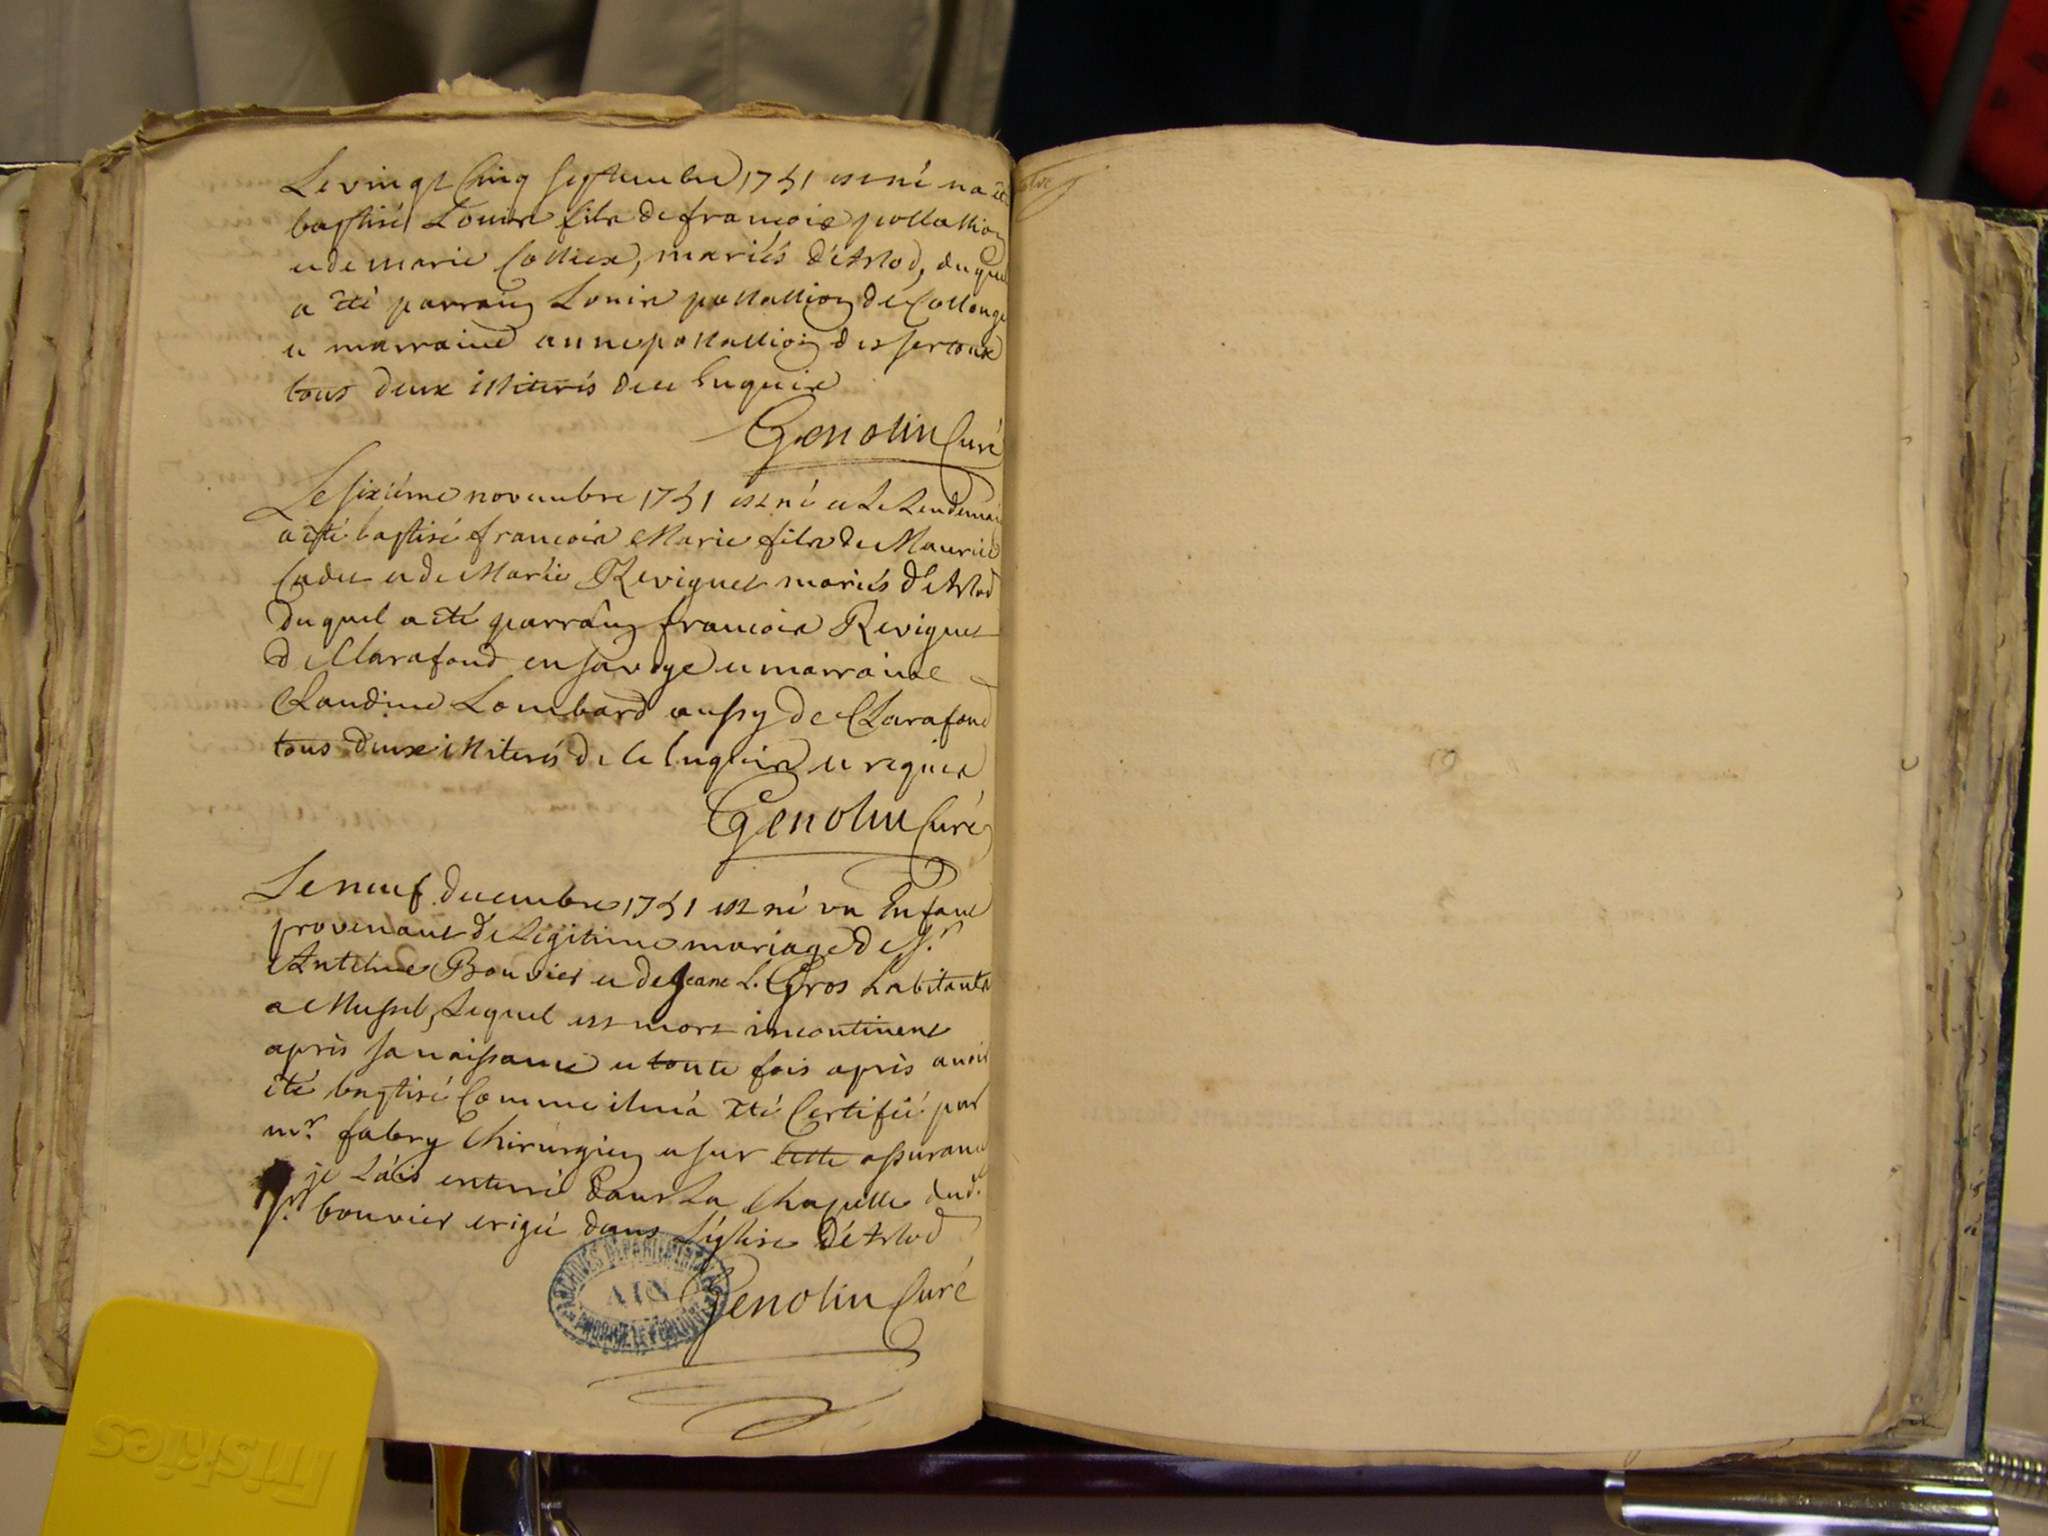 Le vingt Cinq septembre 1751 est né et a été
baptisé Louis fils de francois pollallion
et de marie Collier, mariés d'Arlod, duquel
a été parrain Louis pollallion de Collonge
et marraine anne pollallion des sertoux
tous deux illiterés de ce Enquis
Genolin Curé
Le sixiéme novembre 1751 est né et Le Lendemain
a été baptisé francois Marie fils de Maurice
Cadet et de Marie Reviguet mariés d'Arlod
duquel a été parrain francois Reviguet
de Clarafond en savoye et marraine
Claudine Lombard aussy de Clarafond
tous deux illiterés de ce Enquis et requis
Genolin Curé
Le neuf decembre 1751 est né un Enfant
provenant de Legitime mariage de Sr.
Antelme Bouvier et de Jeane L. Gros habitants
a Mussel, Lequel est mort incontinent
après sa naissance et toute fois après avoir
été baptisé Comme il m'a été Certifié par
mr. fabry Chirurgien et sur cette assurance
je L'ais enterré dans La Chapelle dud.
Sr. bouvier erigée dans L'églize d'Arlod
Genolin Curé
ARCHIVES DEPARTEMENTALES
AIN
PROPRIETE PUBLIQUE
Friskies